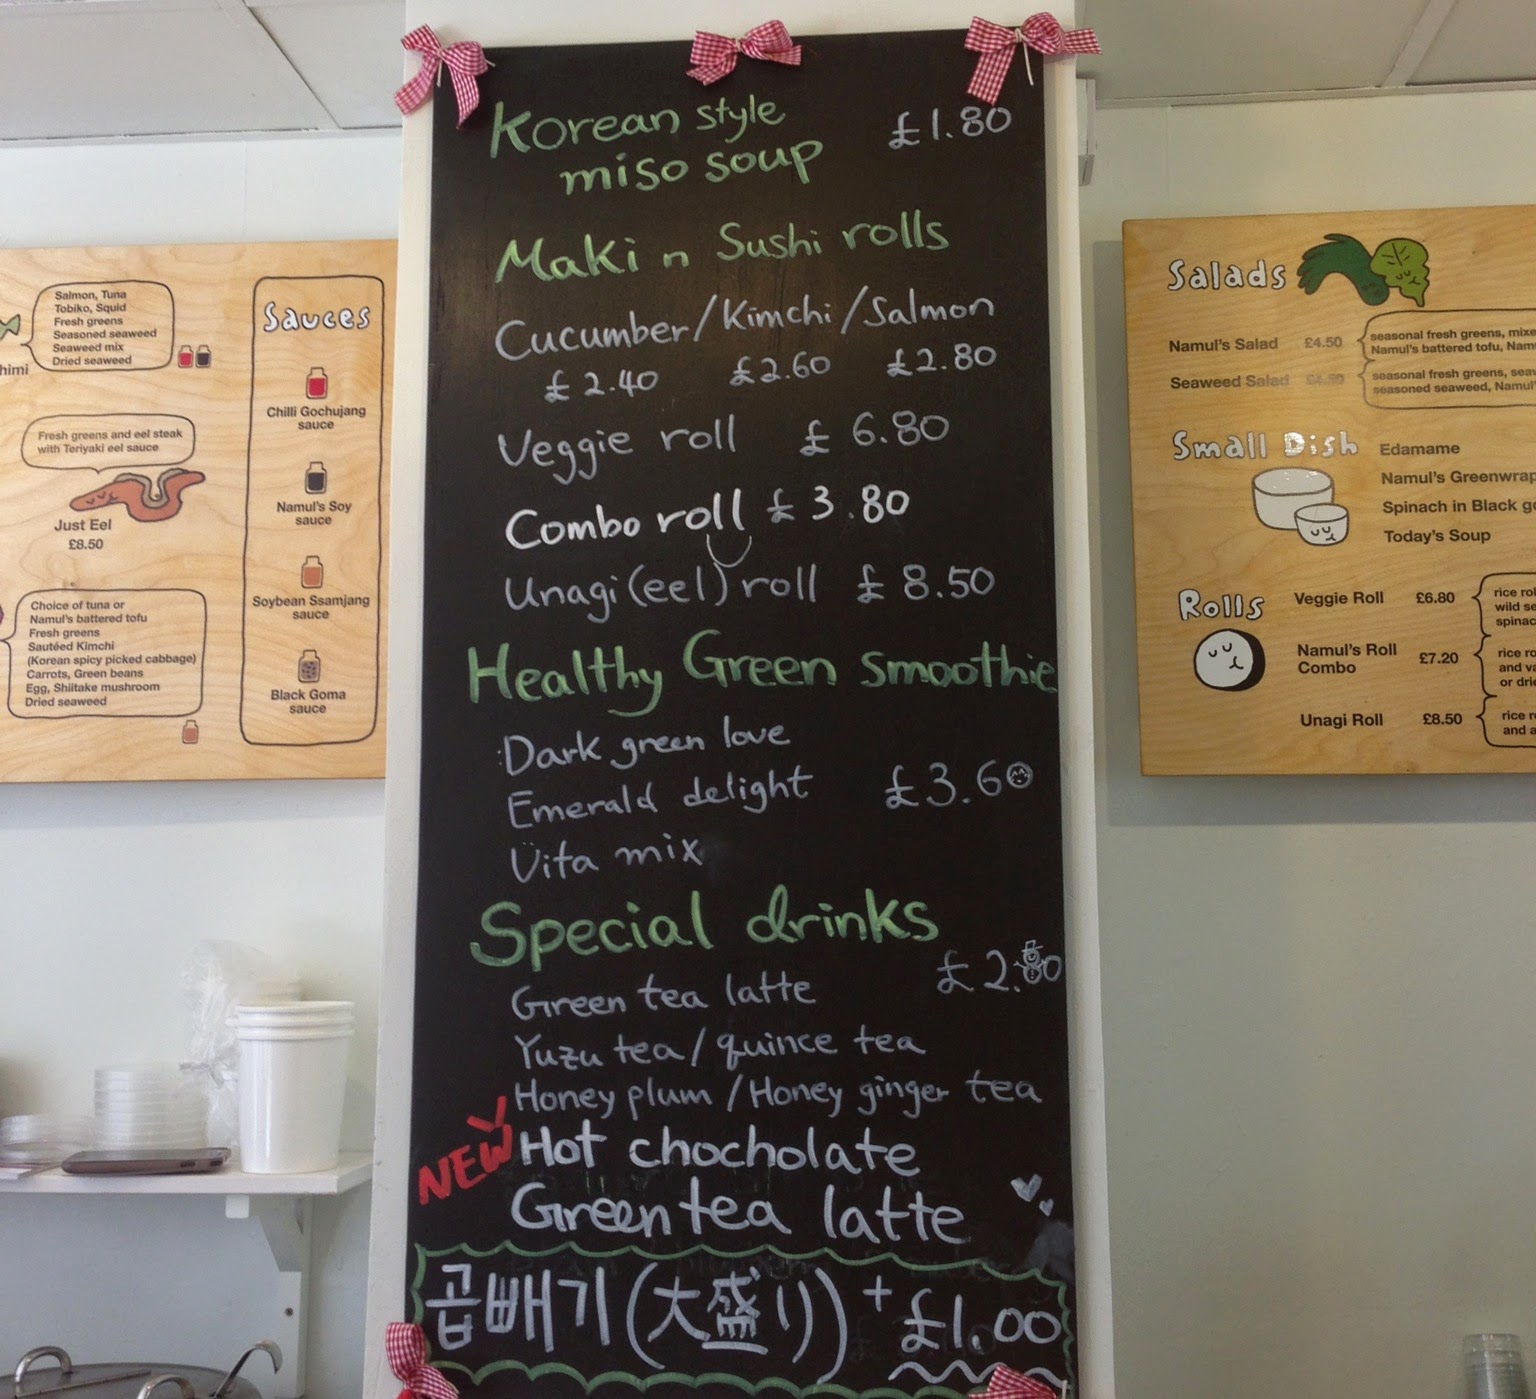 Korean style
miso soup £1.80
Maki n Sushi rolls
Cucumber/Kimchi/Salmon
£2.40 £2.60 £2.80
Veggie roll £6.80
Combo roll £3.80
Unagi(eel) roll £8.50
Healthy Green smoothie
Dark green love
Emerald delight £3.60
Vita mix
Special drinks
Green tea latte £2.80
Yuzu tea/quince tea
Honey plum/Honey ginger tea
NEW Hot chocholate
Green tea latte
곱빼기(大盛り) + £1.00
Salmon, Tuna
Tobiko, Squid
Fresh greens
Seasoned seaweed
Seaweed mix
Dried seaweed
himi
Fresh greens and eel steak
with Teriyaki eel sauce
Just Eel
£8.50
Choice of tuna or
Namul's battered tofu
Fresh greens
Sautéed Kimchi
(Korean spicy picked cabbage)
Carrots, Green beans
Egg, Shiitake mushroom
Dried seaweed
Sauces
Chilli Gochujang
sauce
Namul's Soy
sauce
Soybean Ssamjang
sauce
Black Goma
sauce
Salads
Namul's Salad £4.50
seasonal fresh greens, mixe
Namul's battered tofu, Nam
Seaweed Salad £4.50
seasonal fresh greens, sea
seasoned seaweed, Namul'
Small Dish
Edamame
Namul's Greenwrap
Spinach in Black go
Today's Soup
Rolls
Veggie Roll £6.80
rice rol
wild se
spinac
Namul's Roll
Combo £7.20
rice ro
and va
or drie
Unagi Roll £8.50
rice r
and a